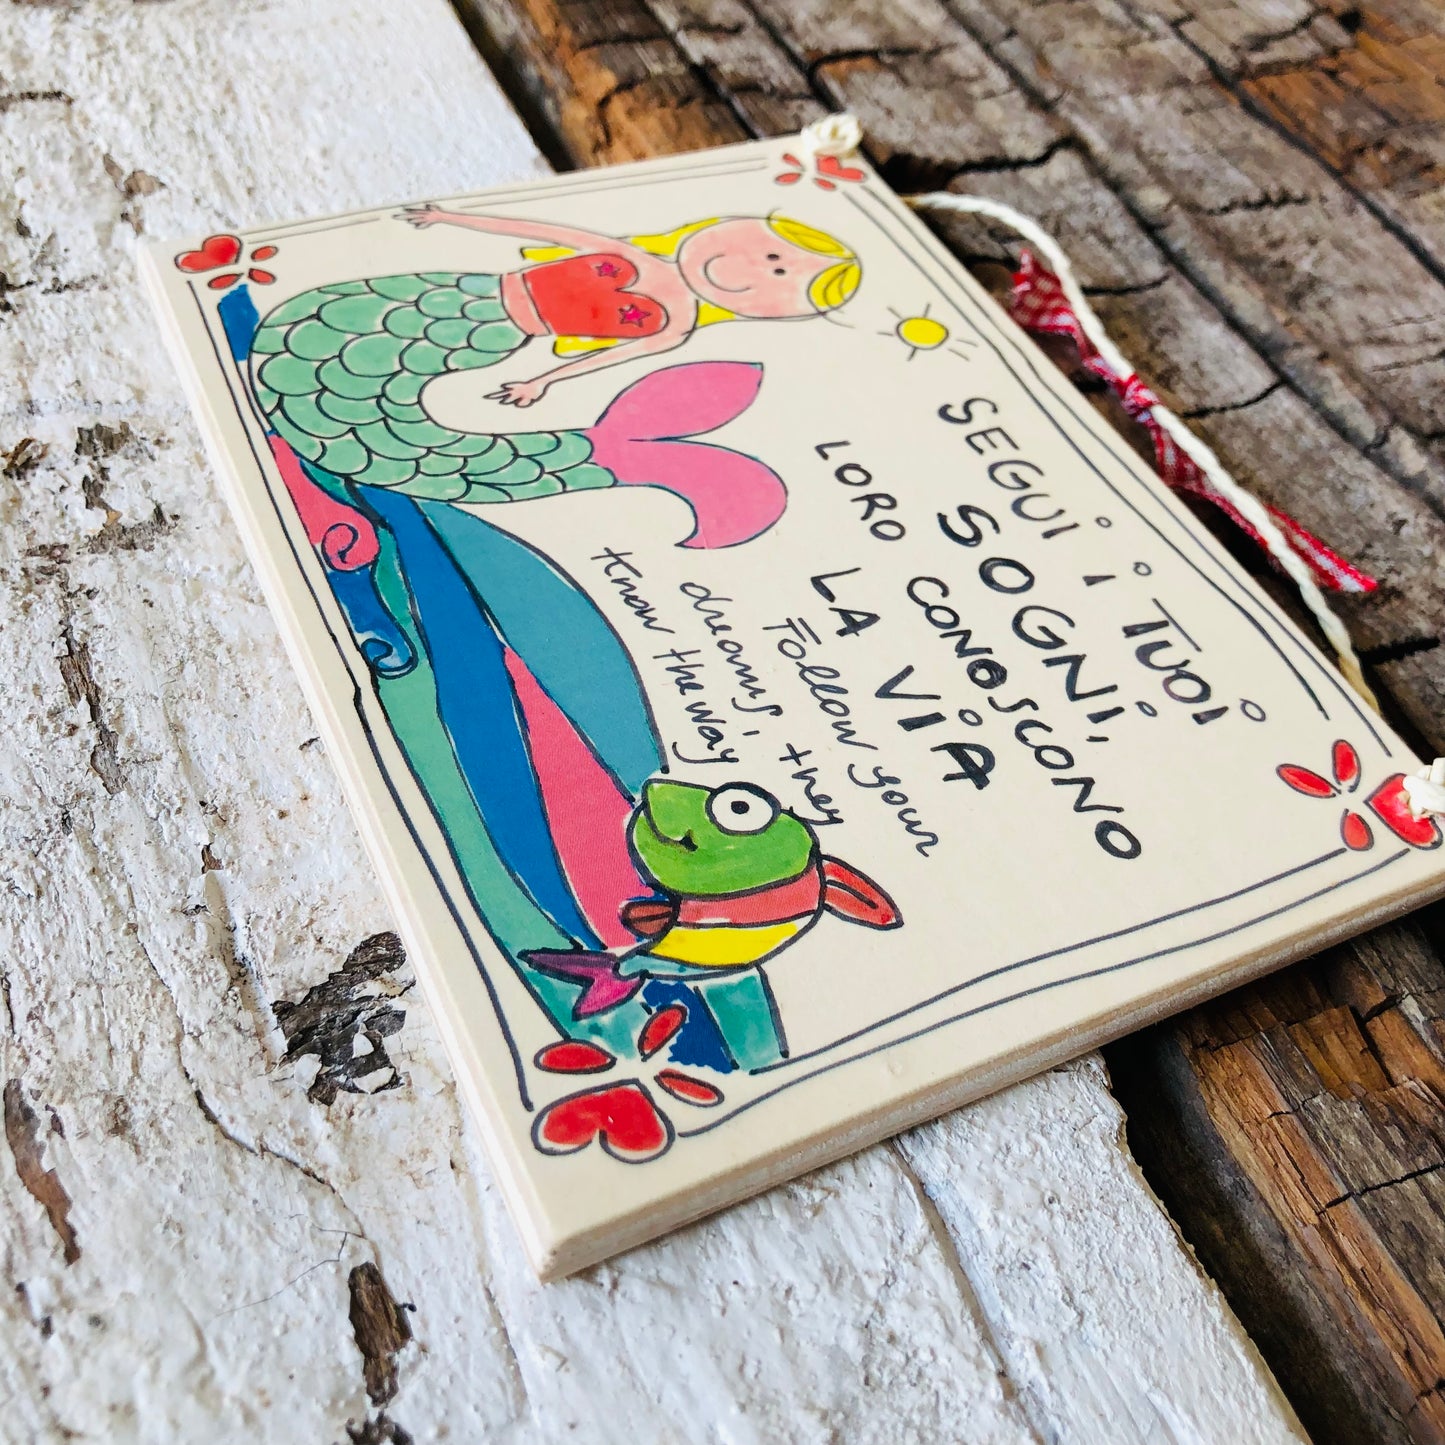 SEGUI i TUOi
SOGNi,
LORO CONOSCONO
LA ViA
Follow your
dreams, they
know the way